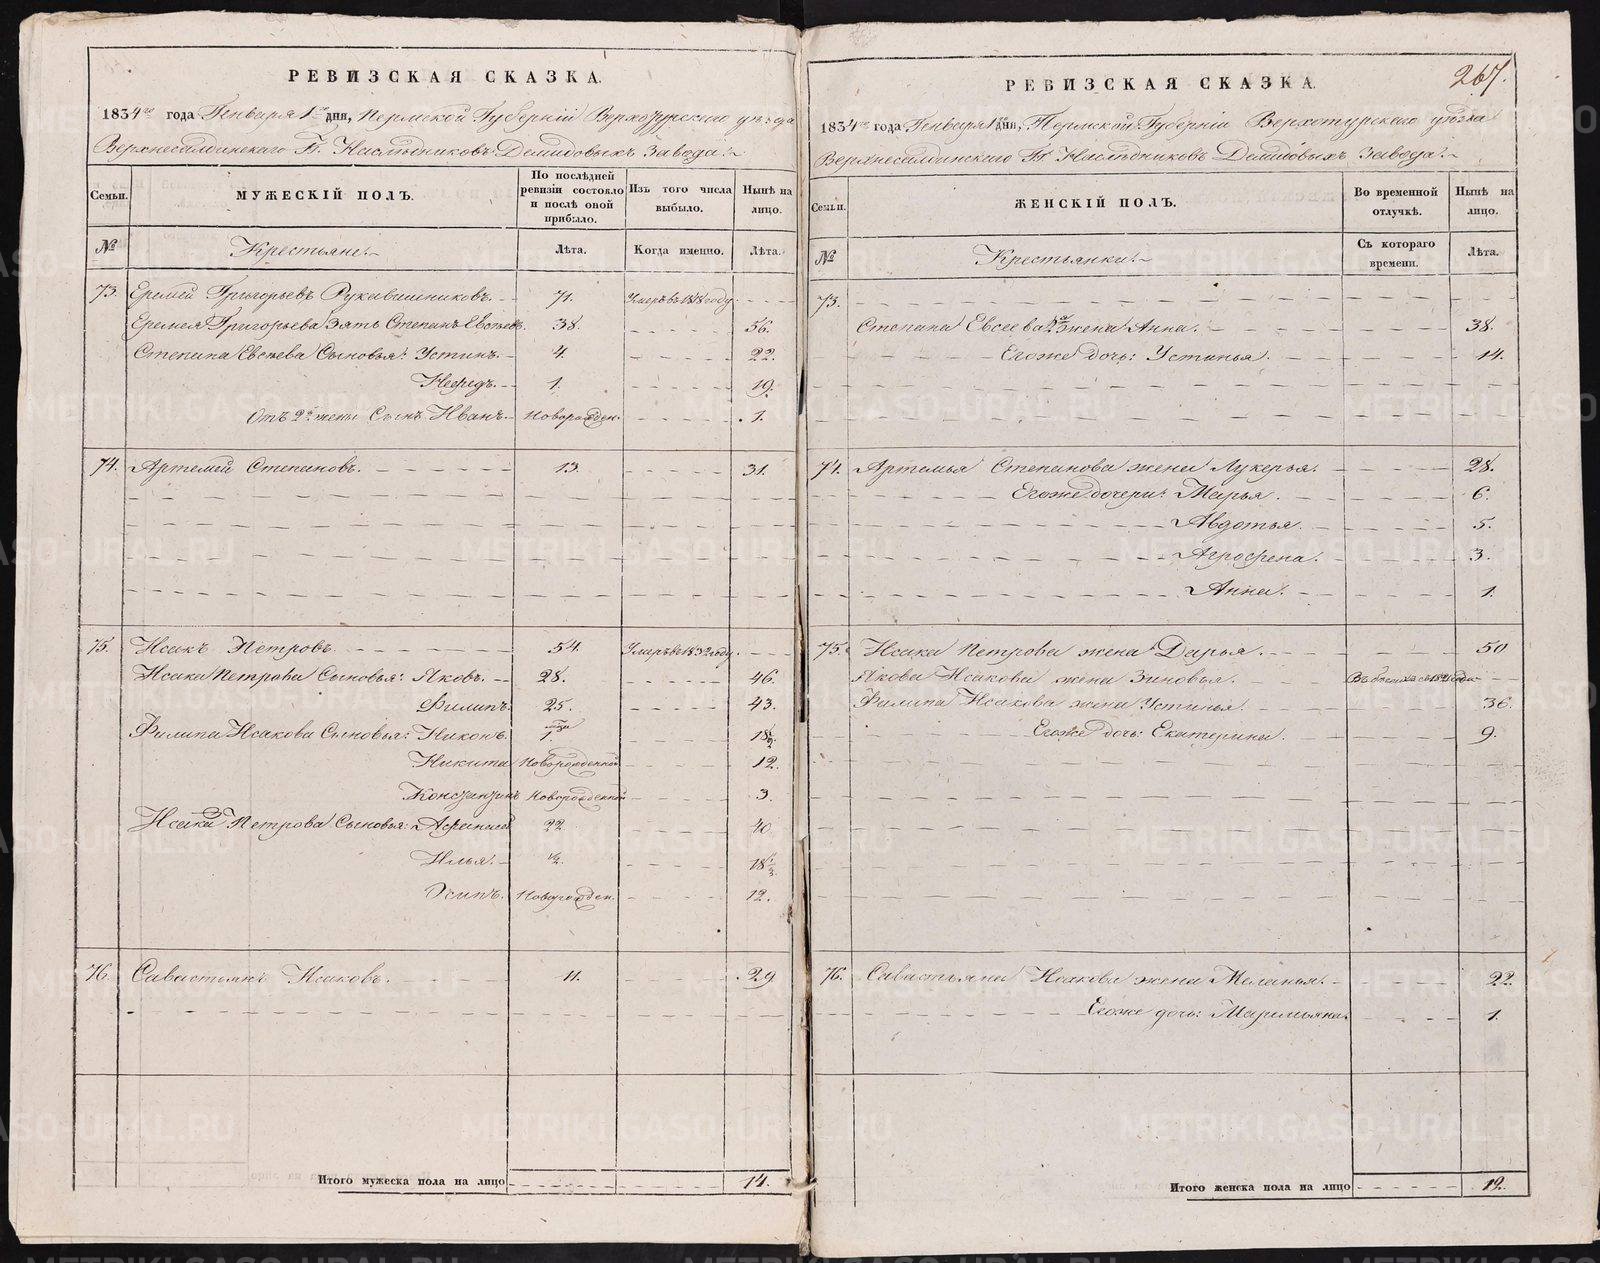 РЕВИЗСКАЯ СКАЗКА.
1834го года Генваря 1го дня, Пермской Губерніи Верхотурскаго уѣзда
Верхнесалдинскаго Гг. Наслѣдниковъ Демидовыхъ Завода.
Семьи. МУЖЕСКІЙ ПОЛЪ. По послѣдней ревизіи состояло и послѣ оной прибыло. Изъ того числа выбыло. Нынѣ на лицо.
№ Крестьяне. Лѣта. Когда именно. Лѣта.
73. Еремей Григорьевъ Рукавишниковъ. 71. Умеръ въ 1818 году.
Еремея Григорьева Зять Степанъ Евсѣевъ. 38. 56.
Степана Евсѣева Сыновья: Устинъ. 4. 22.
1. 19.
Отъ 2й жены Сынъ Иванъ. Новорожден. 1.
74. Артемей Степановъ. 13. 31.
75. Исакъ Петровъ. 54. Умеръ въ 1832 году.
Исака Петрова Сыновья: Яковъ. 28. 46.
Филипъ. 25. 43.
Филипа Исакова Сыновья: Никонъ. 1 18½
Никита Новорожденной 12.
Константинъ Новорожденной 3.
Исака Петрова Сыновья: Афанасей 22. 40.
Илья. ½. 18½
Осипъ. Новорожден. 12.
76. Савастьянъ Исаковъ. 11. 29
Итого мужеска пола на лицо 14.
267.
РЕВИЗСКАЯ СКАЗКА.
1834го года Генваря 1го дня, Пермской Губерніи Верхотурскаго уѣзда
Верхнесалдинскаго Гг. Наслѣдниковъ Демидовыхъ Завода.
Семьи. ЖЕНСКІЙ ПОЛЪ. Во временной отлучкѣ. Нынѣ на лицо.
№ Крестьянки. Съ котораго времени. Лѣта.
73.
Степана Евсеева 2я жена Анна. 38.
Егоже дочь: Устинья. 14.
74. Артемья Степанова жена Лукерья. 28.
Егоже дочери: Марья. 6.
Авдотья. 5.
Агрофена. 3.
Анна. 1.
75. Исака Петрова жена Дарья. 50
Якова Исакова жена Зиновья. Въ бѣгахъ съ году
Филипа Исакова жена Устинья. 36.
Егоже дочь: Екатерина. 9.
76. Савастьяна Исакова жена Меланья. 22.
Егоже дочь: Маремьяна. 1.
Итого женска пола на лицо 12.
METRIKI.GASO-URAL.RU